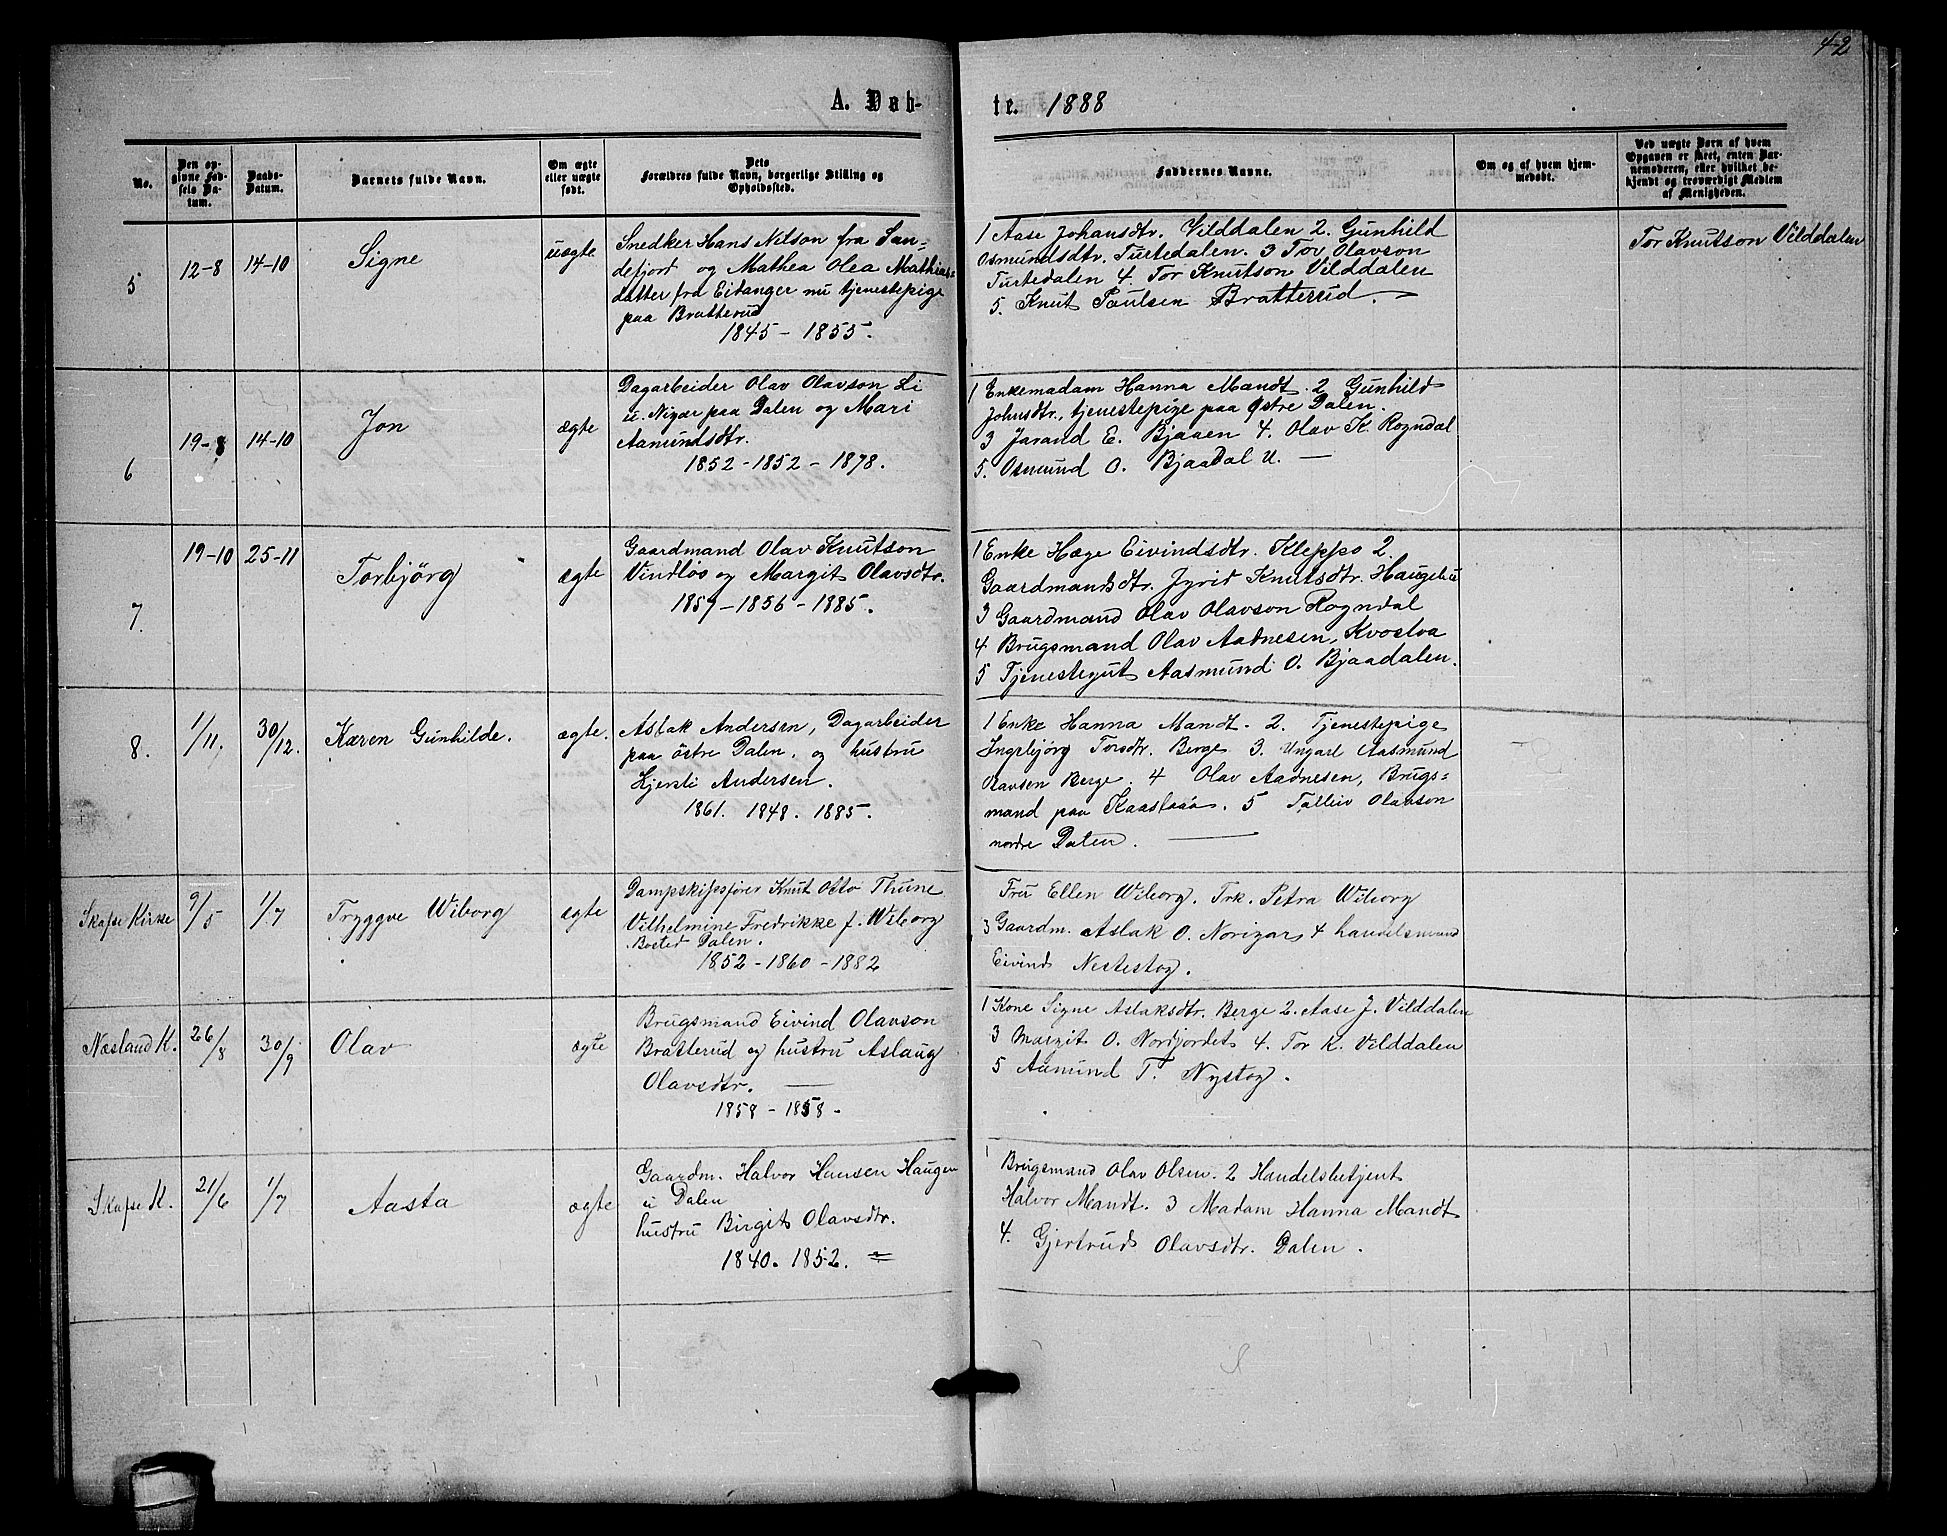 42
A. Døb-
te. 1888
No.
Den op-
givne Fød-
sels Da-
tum.
Daabs-
Datum.
Barnets fulde Navn.
Om ægte
eller uægte
født.
Dets
Forældres fulde Navn, borgerlige Stilling og
Opholdssted.
Faddernes Navne.
Om og af hvem hjem-
medøbt.
Ved uægte Børn af hvem
Opgaven er skeet, enten Bar-
nemoderen, eller hvilket be-
kjendt og troværdigt Medlem
af Menigheden.
5
12-8
14-10
Signe
uægte
Snedker Hans Nilson fra San-
defjord og Mathea Olea Mathias-
datter fra Eidanger nu tjenestepige
paa Bratterud
1845 - 1855.
1 Aase Johansdtr. Vilddalen 2. Gunhild
Osmundsdtr. Turtedalen. 3 Tov Olavson
Turtedalen 4. Tor Knutson Vilddalen
5. Knut Paulsen Bratterud.
Tor Knutson Vilddalen
6
19-8
14-10
Jon
ægte
Dagarbeider Olav Olavson Li
u. Nigar paa Dalen og Mari
Aamundsdtr.
1852 - 1852 - 1878.
1 Enkemadam Hanna Mandt. 2 Gunhild
Johnsdtr., tjenestepige paa østre Dalen.
3 Jarand E. Bjaaen 4. Olav K. Rogndal
5. Osmund O. Bjaadal u.
7.
19-10
25-11
Torbjörg
ægte
Gaardmand Olav Knutson
Vindlös og Margit Olavsdtr.
1857 - 1856 - 1885.
1 Enke Hæge Eivindsdtr. Kleppo 2.
Gaardmandsdtr. Jyrid Knutsdtr. Haugebu
3 Gaardmand Olav Olavson Rogndal
4 Brugsmand Olav Aadnesen, Kvostva
5 Tjenestegut Aasmund O. Bjaadalen.
8.
1/11.
30/12.
Karen Gunhilde.
ægte.
Aslak Andersen, Dagarbeider
paa östre Dalen, og hustru
Kjersti Andersen.
1861. 1848. 1885.
1 Enke Hanna Mandt. 2. Tjenestepige
Ingebjörg Torsdtr. Berge 3. Ungarl Aasmund
Olavsen Berge. 4 Olav Aadnesen, Brugs=
mand paa Kaastaaa. 5 Talleiv Olavson
nordre Dalen.
Skafse Kirke
9/5
1/7
Tryggve Wiborg
ægte
Dampskipsfører Knut Otto Thune
Vilhelmine Fredrikke f. Wiborg
Bosted Dalen.
1852 - 1860 - 1882
Fru Ellen Wiborg. Frk. Petra Wiborg
3 Gaardm. Aslak O. Norigar 4 handelsmand
Eivind Nestestog.
Næsland K.
26/8
30/9
Olav
ægte
Brugsmand Eivind Olavson
Bratterud og hustru Aslaug
Olavsdtr.
1858 - 1858 -
1 Kone Signe Aslaksdtr. Berge 2. Aase J. Vilddalen
3 Margit O. Nordjordet 4. Tor K. Vilddalen
5 Aamund T. Nystog.
Skafse K.
21/6
1/7
Aasta
ægte
Gaardm. Halvor Hansen Haugen
u Dalen
hustru Birgit Olavsdtr.
1840. 1852. =
1 Brugsmand Olav Olsen. 2 Handelsbetjent
Halvor Mandt. 3 Madam Hanna Mandt
4. Gjertrud Olavsdtr. Dalen.